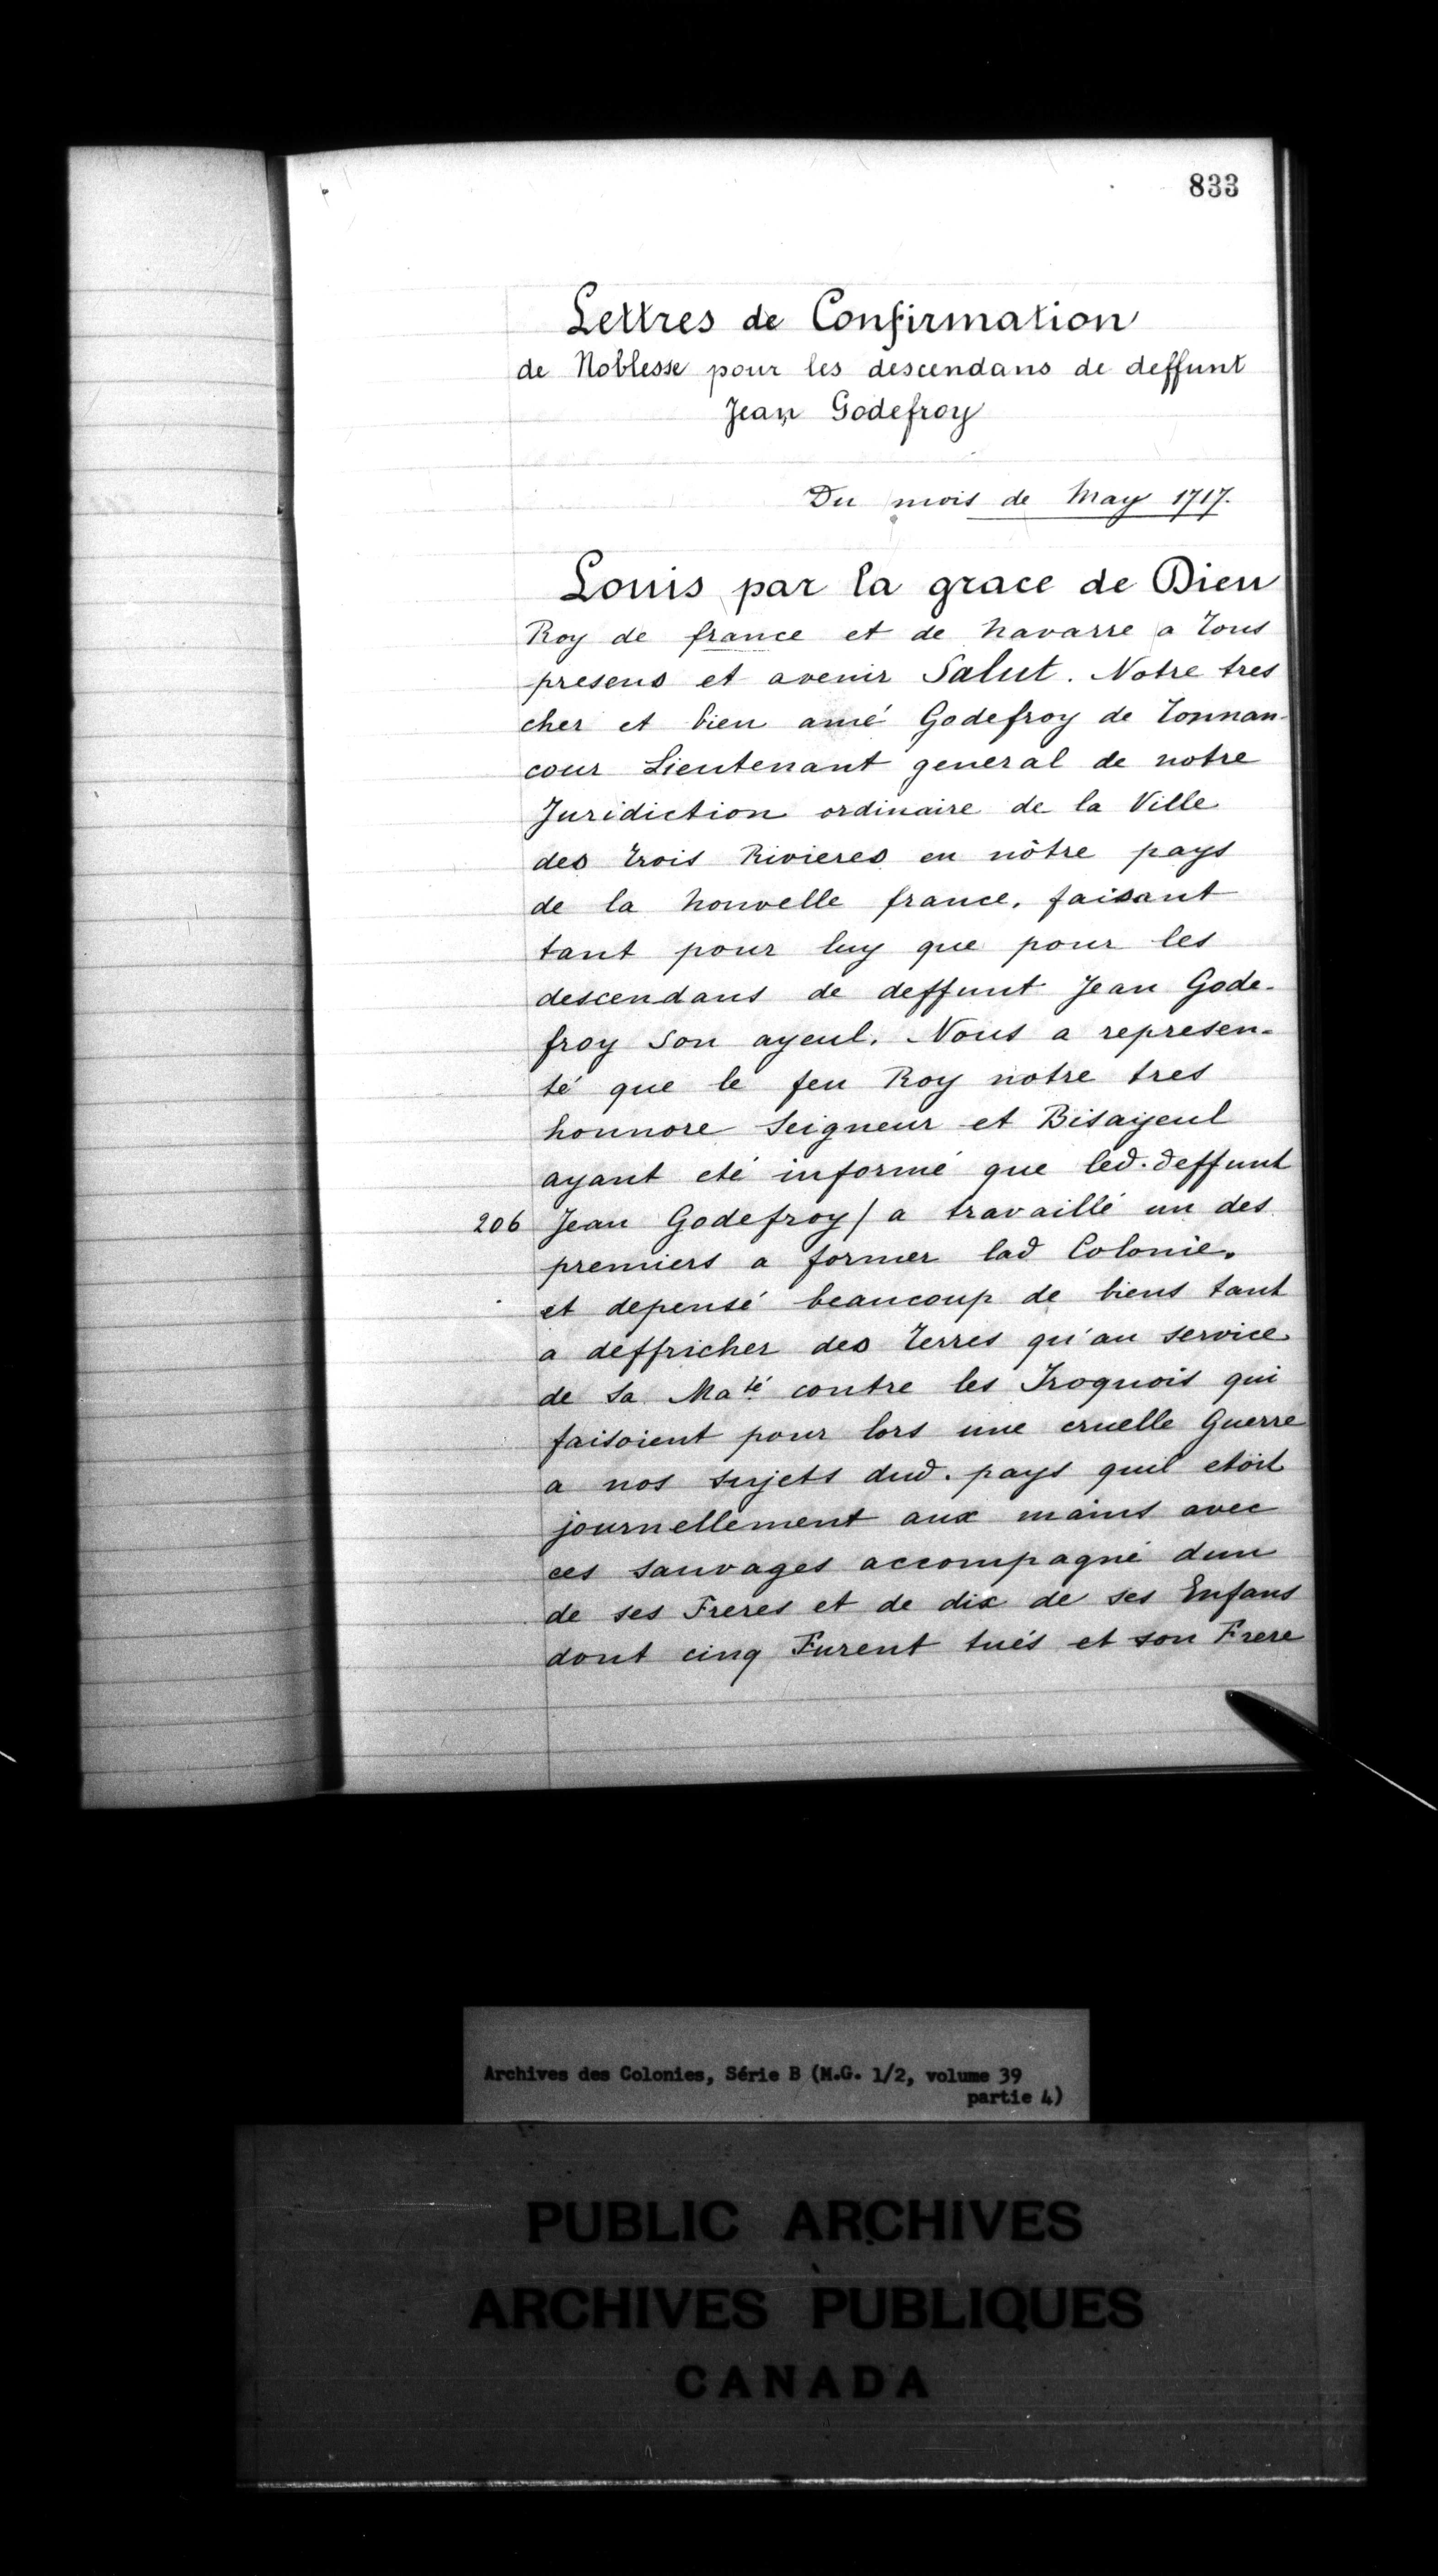 833
Lettres de Confirmation
de Noblesse pour les descendans de deffunt
Jean Godefroy
Du mois de May 1717.
Louis par la grace de Dieu
Roy de france et de Navarre a tous
presens et avenir Salut. Notre tres
cher et bien amé Godefroy de Tonnan-
cour Lieutenant general de notre
Juridiction ordinaire de la Ville
des trois Rivieres en nôtre pays
de la Nouvelle france, faisant
tant pour luy que pour les
descendans de deffunt Jean Gode-
froy son ayeul. Nous a represen-
té que le feu Roy notre tres
honnore Seigneur et Bisayeul
ayant eté informé que led. deffunt
206 Jean Godefroy / a travaillé un des
premiers a former lad Colonie.
et depensé beaucoup de biens tant
a deffricher des terres qu'au service
de Sa Maté contre les Iroquois qui
faisoient pour lors une cruelle Guerre
a nos sujets dud. pays quil etoit
journellement aux mains avec
ces sauvages accompagné dun
de ses Freres et de dix de ses Enfans
dont cinq Furent tués et son Frere
Archives des Colonies, Série B (M.G. 1/2, volume 39
partie 4)
PUBLIC ARCHIVES
ARCHIVES PUBLIQUES
CANADA